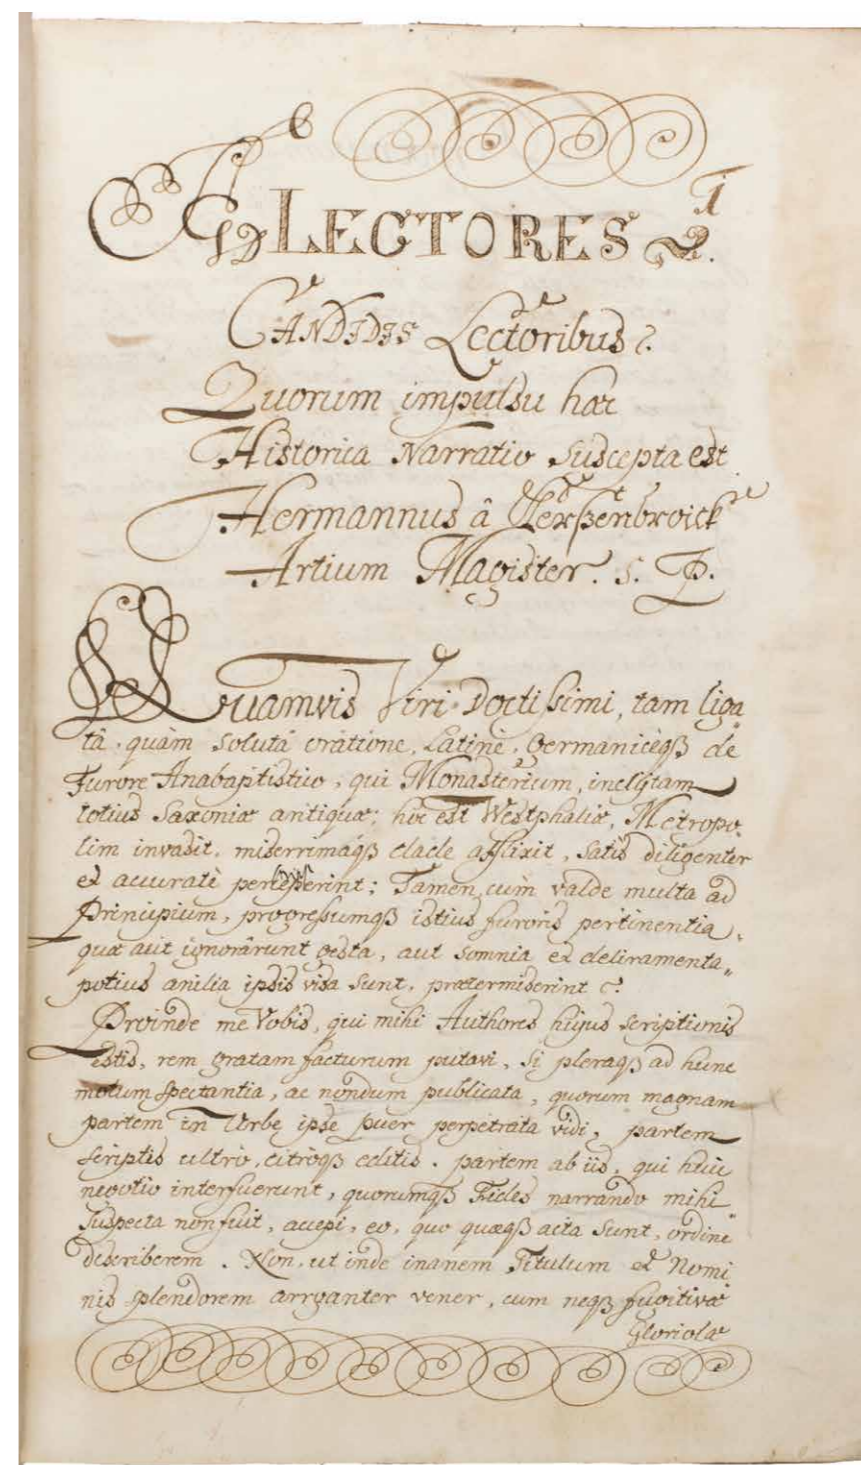 AD LECTORES
1
CANDIDIS Lectoribus
Quorum impulsu hæc
Historica Narratio suscepta est
Hermannus â Kerssenbroick
Artium Magister. S. P.
Quamvis Viri Doctissimi, tam liga¬
tâ, quàm solutâ oratione, Latinè, Germanicèqȝ de
Furore Anabaptistico, qui Monasterium, inclytam
totius Saxoniæ antiquæ; hoc est Westphaliæ, Metropo¬
lim invasit, miserrimáqȝ clade afflixit, satis diligenter
et accuratè perscripserint; Tamen cùm valde multa ad
Principium, progressumqȝ istius furoris pertinentia,
quæ aut ignorârunt gesta, aut somnia et deliramenta
potius anilia ipsis visa sunt, prætermiserint
Proinde me Vobis, qui mihi Authores hujus scriptionis
estis, rem gratam facturum putavi, si pleraqȝ ad hunc
motum spectantia, ac nondum publicata, quorum magnam
partem in Urbe ipse puer perpetrata vidi, partem
scriptis ultrò, citròqȝ editis. partem ab iis, qui huic
negotio interfuerunt, quorumqȝ Fides narrando mihi
suspecta non fuit, accepi, eo, quo quæqȝ acta sunt, ordine
describerem. Non, ut inde inanem Titulum et Nomi
nis splendorem arroganter vener, cum neqȝ fugitivæ
Gloriolæ